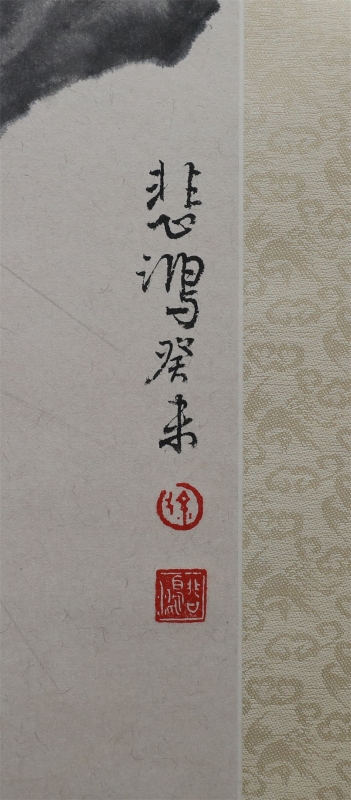 悲鴻癸未
徐
悲鴻